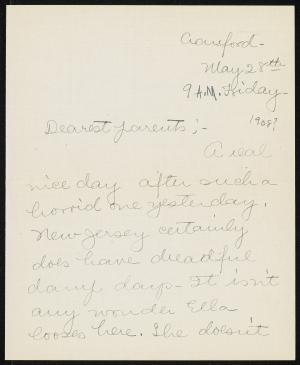 Cranford -
May 28th
9 A.M. Friday -
1908?
Dearest parents ; -
A real
nice day after such a
horrid one yesterday.
New Jersey certainly
does have dreadful
damp days - It isn't
any wonder Ella
here. She doesn't